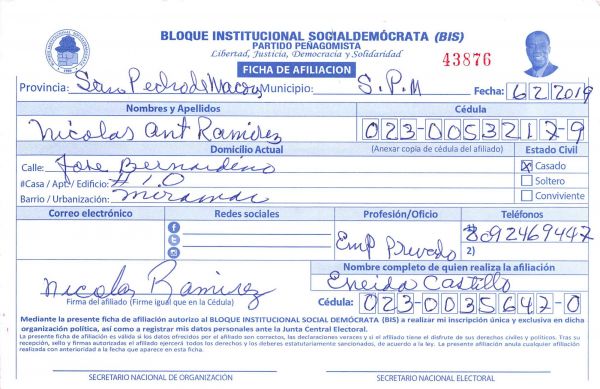 BLOQUE INSTITUCIONAL SOCIALDEMÓCRATA (BIS)
PARTIDO PEÑAGOMISTA
Libertad, Justicia, Democracia y Solidaridad
43876
FICHA DE AFILIACION
Provincia: San Pedro de Macorís Municipio: S.P.M Fecha: 6/2/2019
Nombres y Apellidos Cédula
Nicolas Ant Ramirez 023-0053217-9
Domicilio Actual (Anexar copia de cédula del afiliado) Estado Civil
Calle: Jose Bernardino
Casado
#Casa / Apt. / Edificio: #10
Soltero
Barrio / Urbanización: Miramar
Conviviente
Correo electrónico Redes sociales Profesión/Oficio Teléfonos
Emp Prevado
8092469447
2)
Nombre completo de quien realiza la afiliación
Nicolas Ramirez
Eneida Castillo
Firma del afiliado (Firme igual que en la Cédula)
Cédula: 023-0035647-0
Mediante la presente ficha de afiliación autorizo al BLOQUE INSTITUCIONAL SOCIAL DEMÓCRATA (BIS) a realizar mi inscripción única y exclusiva en dicha
organización política, así como a registrar mis datos personales ante la Junta Central Electoral.
La presente ficha de afiliación es válida si los datos ofrecidos por el afiliado son correctos, las declaraciones veraces y si el afiliado tiene el disfrute de sus derechos civiles y políticos. Tras su
recepción, sello y firmas autorizadas el afiliado ejercerá todos los derechos y los deberes estatutariamente sancionados, de acuerdo a la ley. La presente afiliación anula cualquier afiliación
realizada con anterioridad a la fecha que aparece en esta ficha.
SECRETARIO NACIONAL DE ORGANIZACIÓN SECRETARIO NACIONAL ELECTORAL